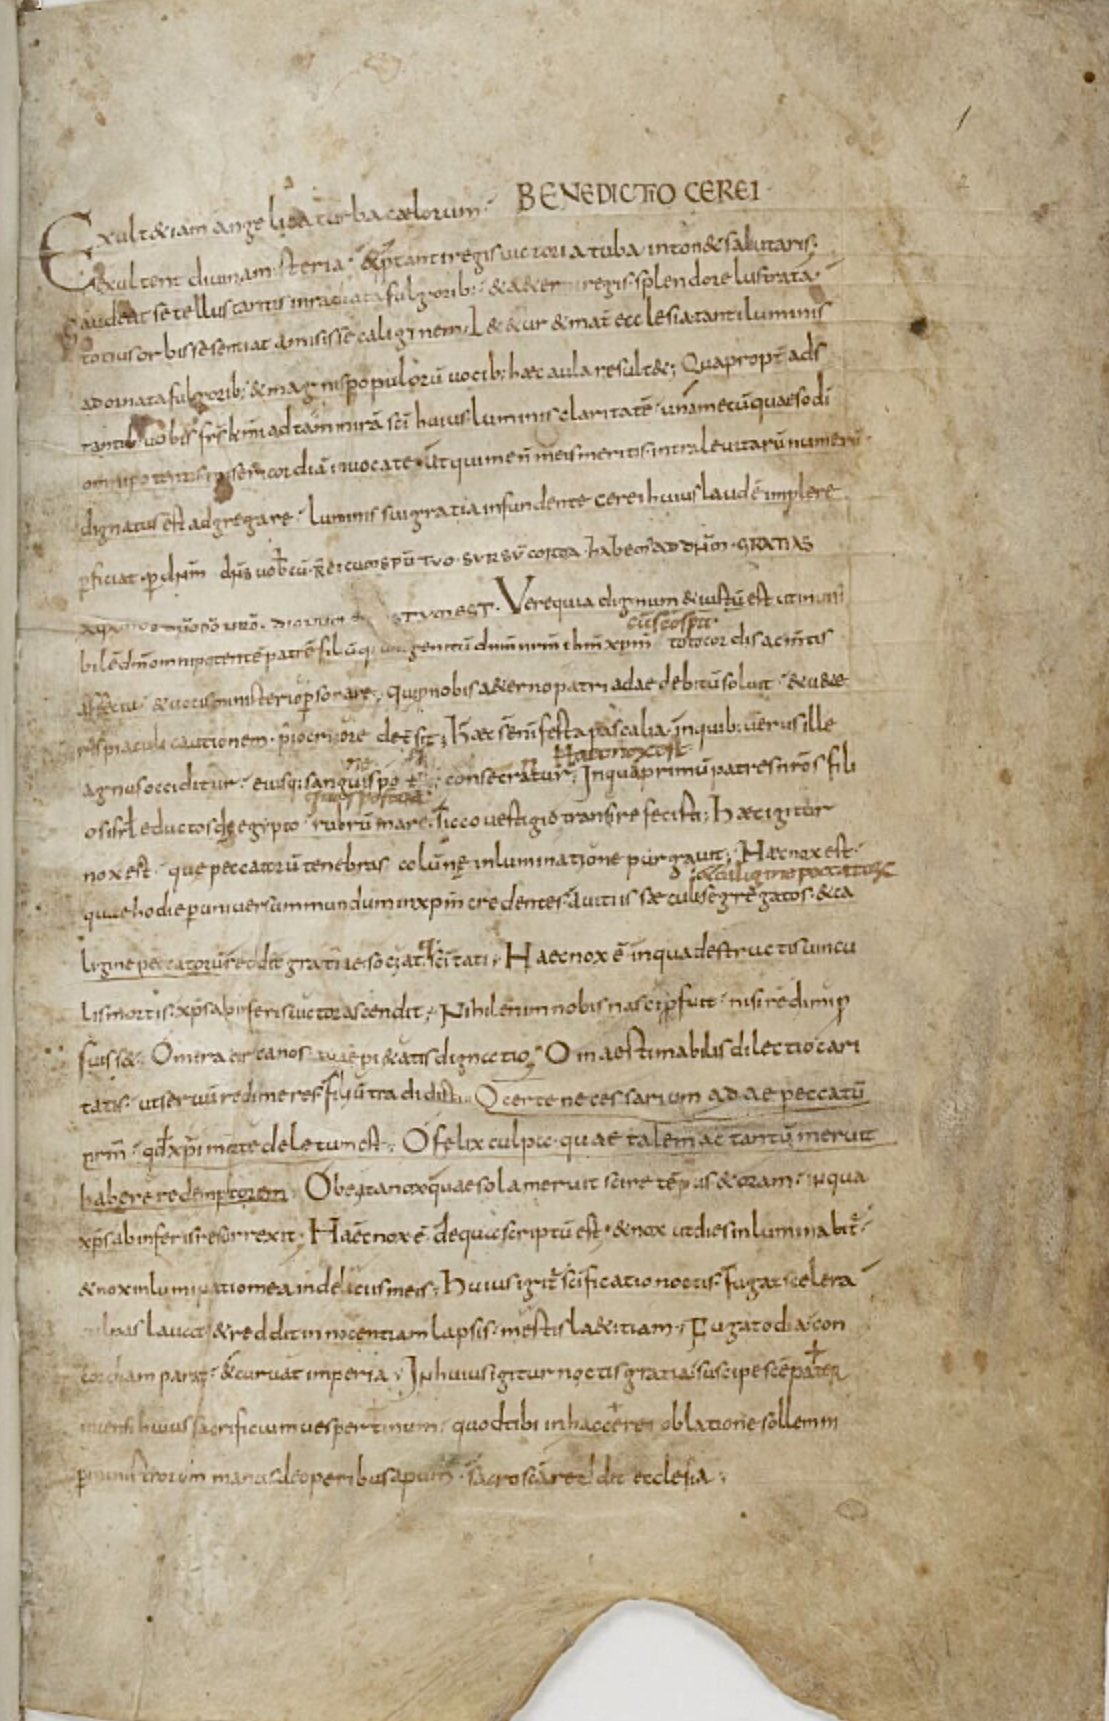 BENEDICTIO CEREI
Exult&iam angelica turba cælorum·
Exultent diuina mysteria· &ptanti regis uictoria tuba inton& salutaris;
Gaudeat se tellus tantis inradiata fulgorib;· & aeterni regis splendore lustrata·
totius orbis se sentiat amisisse caliginem· L&&ur & mat ecclesia tanti luminis
adornata fulgorib;· & magnis populorū uocib; hæc aula result&; Quapropt ads
tantib; uobis frs krmi ad tam mirā sci huius luminis claritatē· una mecū quaeso di
omnipotentis misericordiā inuocate· Ut qui me n̄ meis meritis· intra leuitarū numerū·
dignatus est adgregare· luminis sui gratia infundente cerei huius laudē implere
pficiat· p dnm̄· dns̄ uob cū· Rei cum spū tuo· sursū corda· habem ad dnm̄· GRATIAS
dno do nro· dignum & iustum est· Vere quia dignum & iustū est ut inuisi
cū sco spu
bilē dm̄ omnipotentē patrē filiūq; unigenitū dnm̄ nrm̄ ihm̄ xpm̄ toto cordis ac m̄tis
affectu· & uocis ministerio psonare; Qui p nobis aeterno patri adae debitū soluit· & ueteris
piaculi cautionem· pio cruore detersit; Haec sn̄t enim festa paschalia· in quib; uerus ille
Haec nox est
agnus occiditur· eiusq; sanguis postib; consecratur; In qua primū patres nr̄os fili
os isrl eductos de egypto rubrū mare· sicco uestigio transire fecisti; Haec igitur
nox est· que peccatorū tenebras colūnę inluminatione purgauit; Haec nox est·
& caligine peccatorū
quae hodie p uniuersum mundum in xpm̄ credentes· a uitiis sæculi segregatos· & ca
ligine peccatorū reddit gratiae· sociat scītati; Haec nox ē· in qua destructis uincu
lis mortis· xps̄ ab inferis uictor ascendit; Nihil enim nobis nasci pfuit· nisi redimi p
fuiss&; O mira circa nos tuae pi&atis dignatio; O inaestimabilis dilectio cari
tatis· ut seruū redimeres· filiū tradidisti; O certe necessarium adae peccatū
nrm̄· qd xpi morte deletum est; O felix culpa· quae talem ac tantū meruit
habere redemptorem; O beata nox quae sola meruit scire tēpus & oram· in qua
xps̄ ab inferis resurrexit; Haec nox ē· de qua scriptū est· & nox ut dies inluminabit·
& nox inluminatio mea in deliciis meis; Huius igit scificatio noctis· fugat scelera
culpas lauat· & reddit innocentiam lapsis· męstis laetitiam; Fugat odia· con
cordiam parat· & curuat imperia; In huius igitur noctis gratia· suscipe sce pater
incensi huius sacrificium uespertinum· quod tibi in hac cerei oblatione sollemni
p ministrorum manus de operibus apum· sacrosca reddit ecclesia;